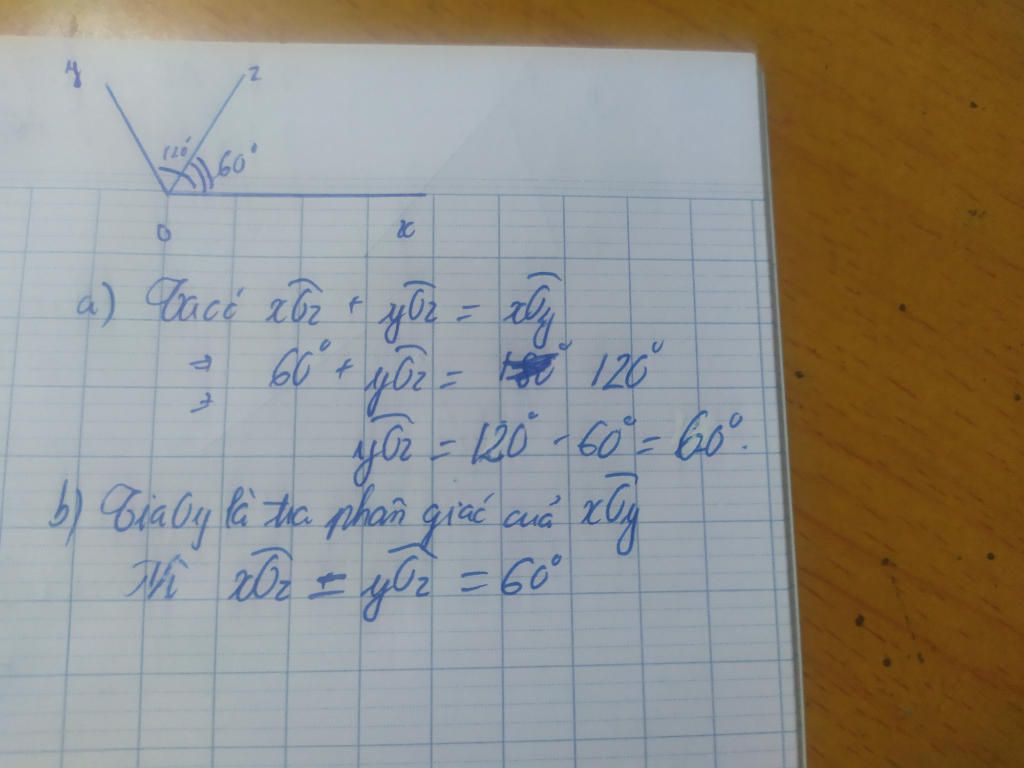 y z
120° 60°
O x
a) Ta có xOz + yOz = xOy
⇒ 60° + yOz = 120°
⇒
yOz = 120° - 60° = 60°.
b) Tia Oy là tia phân giác của xOy
Vì xOz = yOz = 60°